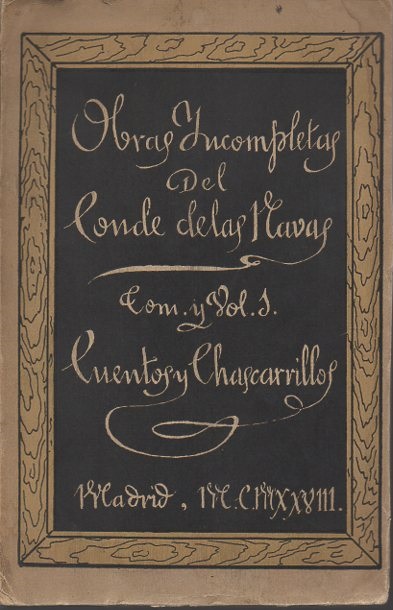 Obras Incompletas
Del
Conde de las Navas
Tom. y Vol. I.
Cuentos y Chascarrillos
Madrid, M.CMXXVIII.